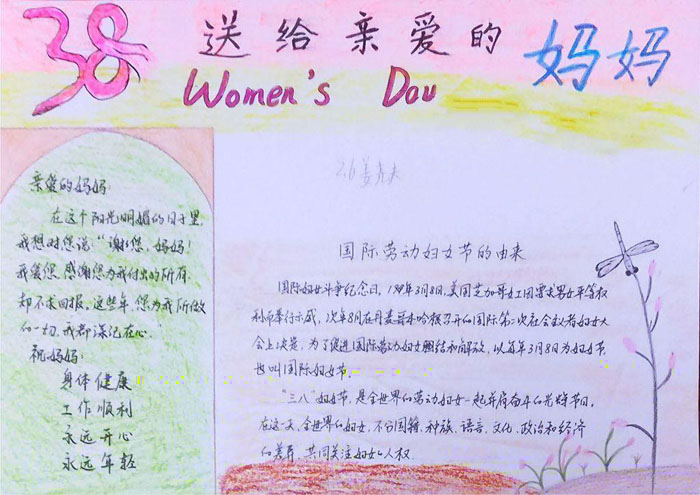 38 送给亲爱的 妈妈
Women's Dau
亲爱的妈妈:
在这个阳光明媚的日子里,
我想对您说:"谢谢您,妈妈!
我爱您,感谢您为我付出的所有,
却不求回报,这些年,您为我所做
的一切,我都深记在心."
祝妈妈:
身体健康
工作顺利
永远开心
永远年轻
国际劳动妇女节的由来
国际妇女斗争纪念日,1909年3月8日,美国芝加哥女工因要求男女平等权
利而举行示威,次年8月在丹麦哥本哈根召开的国际第二次社会主义者妇女大
会上决定,为了促进国际劳动妇女团结和解放,以每年3月8日为妇女节,
也叫国际妇女节。
"三八"妇女节,是全世界的劳动妇女一起并肩奋斗的光辉节日。
在这一天,全世界的妇女,不分国籍、种族、语言、文化、政治和经济
的差异,共同关注妇女的人权